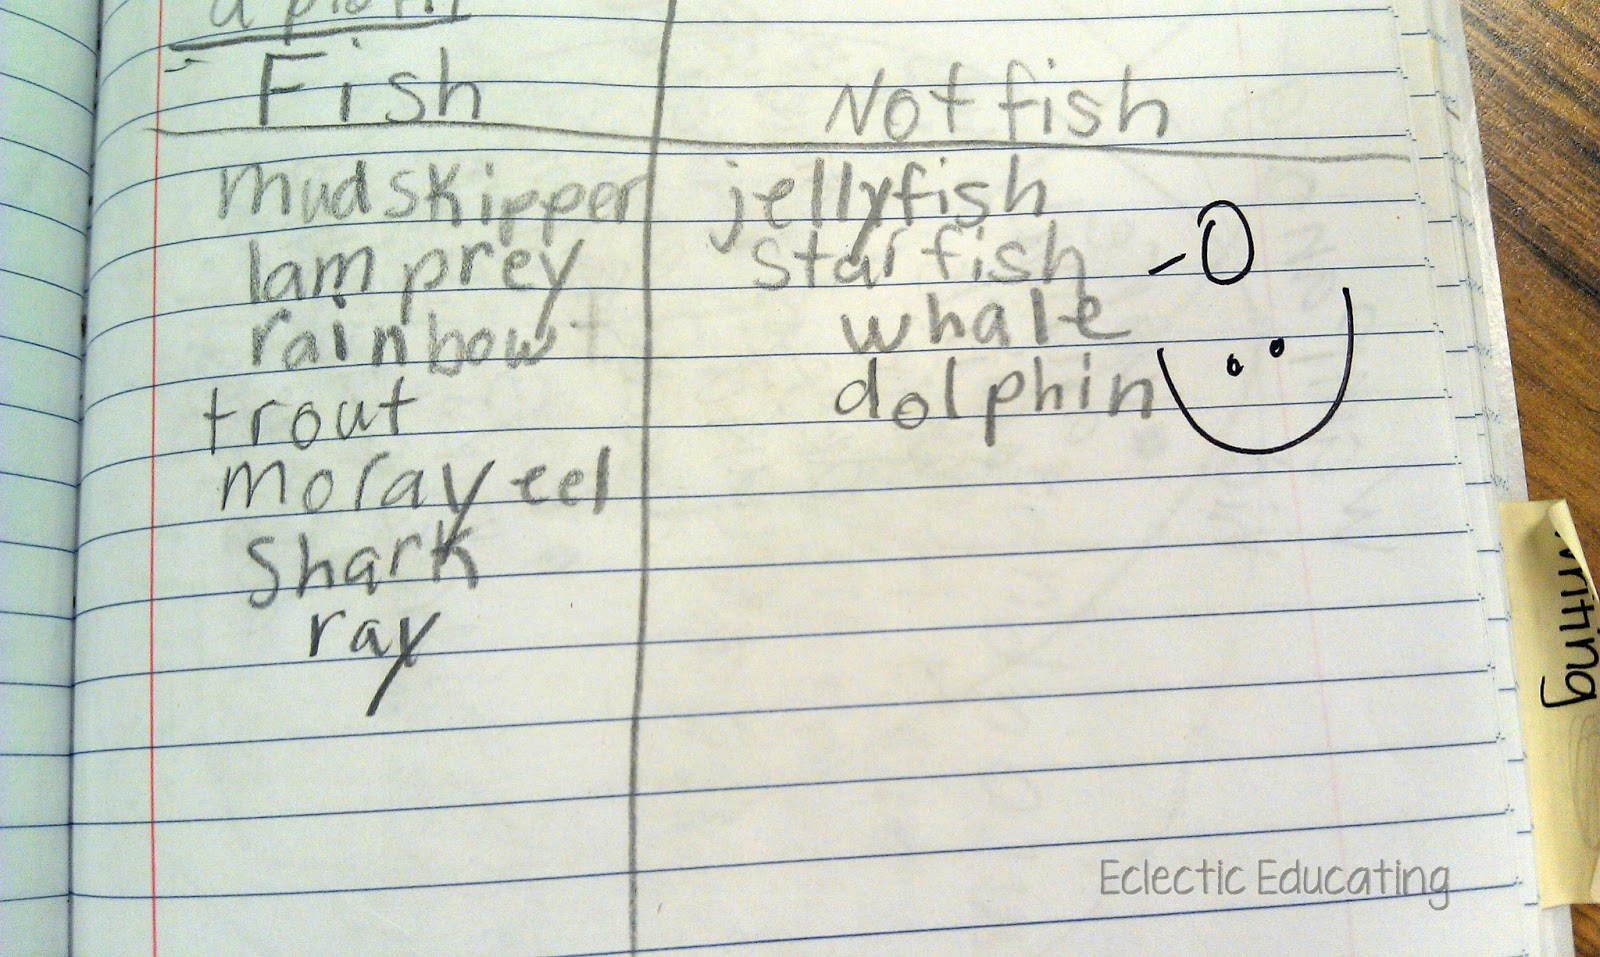 Fish
Not fish
mudskipper
lamprey
rainbow
trout
moray eel
shark
ray
jellyfish
starfish
whale
dolphin
-0
writing
Eclectic Educating